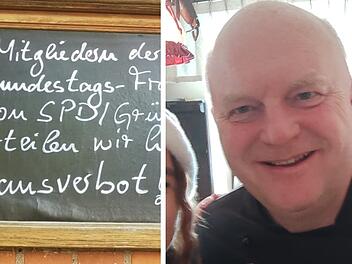 Mitgliedern der
undestags-Fra
on SPD/Grü
teilen wir h
ausverbot!